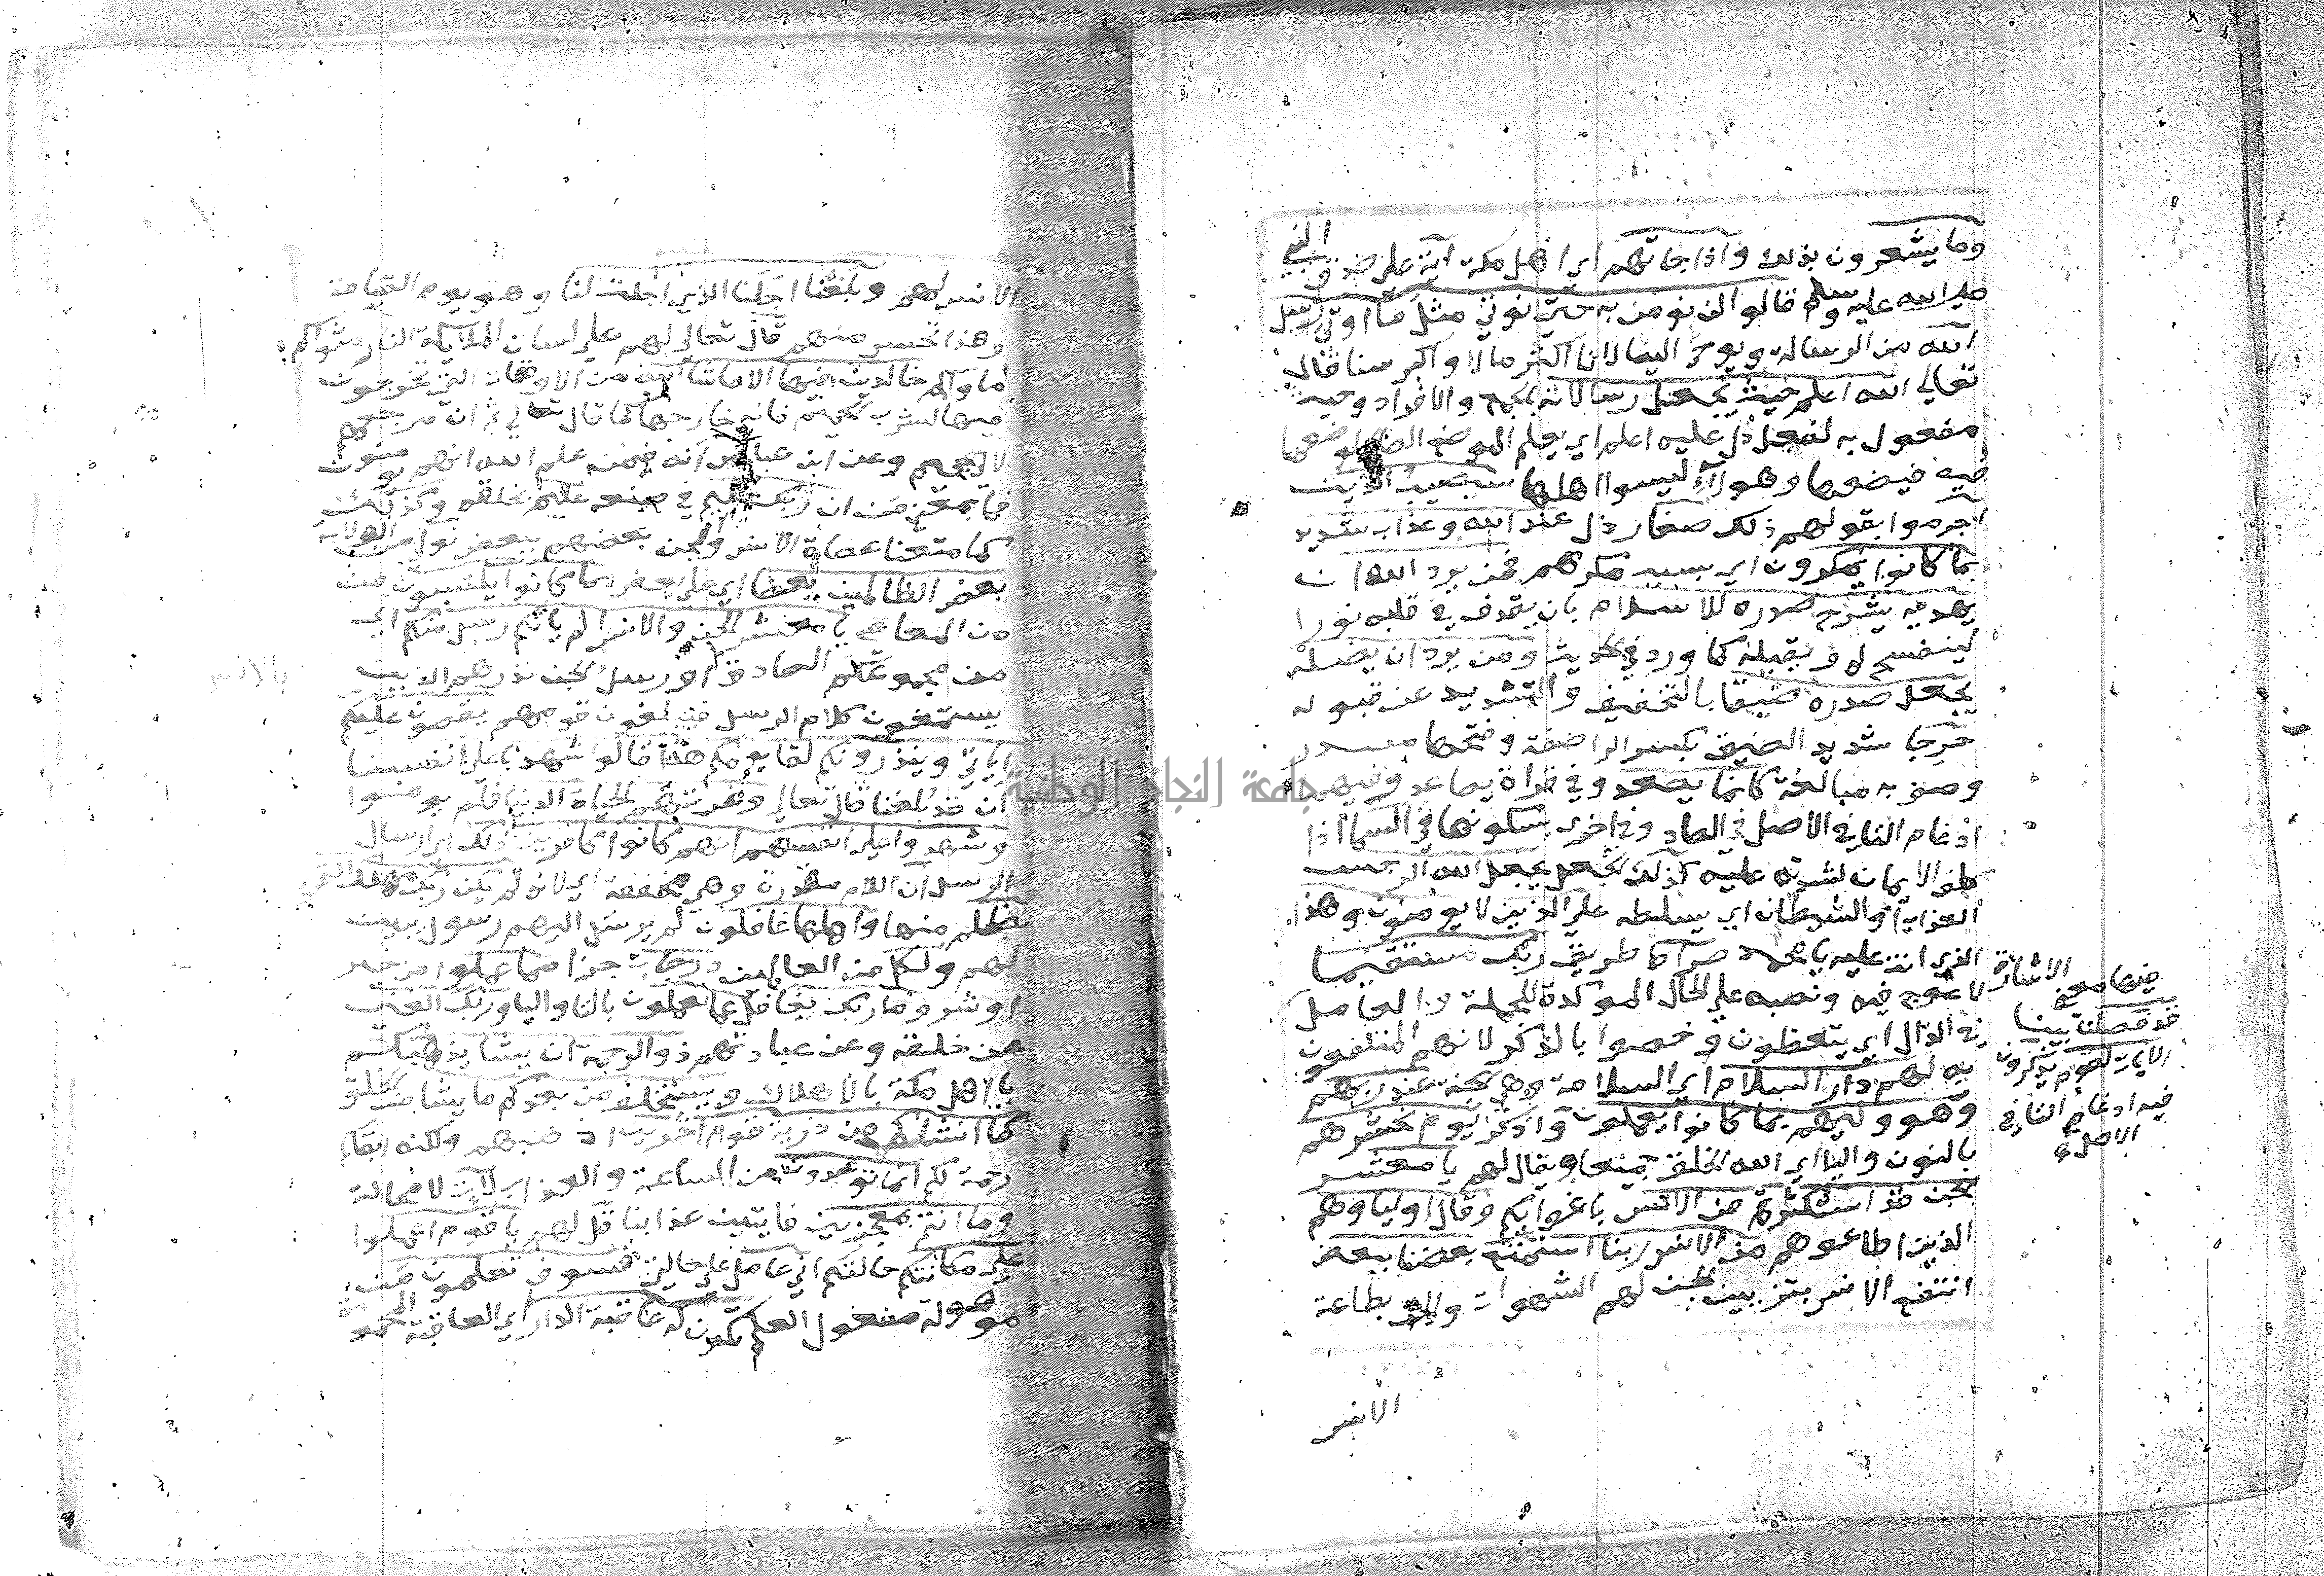 وما يشعرون بذلك واذا جاتهم اي اهل مكة آية على صدق النبي
صلى الله عليه وسلم قالوا لن نومن به حتى نوتى مثل ما اوتي رسل
الله من الرسالة ويوحى الينا لانا اكثر مالا واكبر سنا قال
تعالى الله اعلم حيث يجعل رسالاته بالجمع والافراد وحيث
مفعول به لفعل دل عليه اعلم اي يعلم الموضع الصالح لوضعها
فيه فيضعها وهولاء ليسوا اهلها سيصيب الذين
اجرموا بقولهم ذلك صغار ذل عند الله وعذاب شديد
بما كانوا يمكرون اي بسبب مكرهم فمن يرد الله ان
يهديه يشرح صدره للاسلام بان يقذف في قلبه نورا
لينفسح له ويقبله كما ورد في الحديث ومن يرد ان يضله
يجعل صدره ضيقا بالتخفيف والتشديد عن قبوله
حرجا شديد الضيق بكسر الرا صفة وفتحها مصدر
وصف به مبالغة كانما يصعد وفي قراة يصاعد وفيهما
ادغام التا في الاصل في الصاد وفي اخرى بسكونها في السما اذا
كلف الايمان لشدته عليه كذلك الجعل يجعل الله الرجس
العذاب او الشيطان اي يسلطه على الذين لا يومنون وهذا
الذي انت عليه يا محمد صراط طريق ربك مستقيما
لا عوج فيه ونصبه على الحال الموكدة للجملة والعامل
فيها معنى الاشارة
قد فصلنا بينا
الايات لقوم يذكرون
فيه ادغام التا في
الاصل
في الذال اي يتعظون وخصوا بالذكر لانهم المنتفعون
به لهم دار السلام اي السلامة وهي الجنة عند ربهم
وهو وليهم بما كانوا يعملون واذكر يوم نحشرهم
بالنون واليا اي الله الخلق جميعا ويقال لهم يا معشر
الجن قد استكثرتم من الانس باغوايكم وقال اولياوهم
الذين اطاعوهم من الانس ربنا استمتع بعضنا ببعض
انتفع الانس بتزيين الجن لهم الشهوات والجن بطاعة
الانس
الانس لهم وبلغنا اجلنا الذي اجلت لنا وهو يوم القيامة
وهذا تحسر منهم قال تعالى لهم على لسان الملايكة النار مثواكم
ماواكم خالدين فيها الا ما شا الله من الاوقات التي يخرجون
فيها لشرب الحميم فانه خارجها كما قال تعالى ثم ان مرجعهم
لالى الجحيم وعن ابن عباس انه فيمن علم الله انهم يومنون
فما بمعنى من ان ربك حكيم في صنعه عليم بخلقه وكذلك
كما متعنا عصاة الانس والجن بعضهم ببعض نولي من الولاية
بعض الظالمين بعضا اي على بعض بما كانوا يكسبون من
من المعاصي يا معشر الجن والانس الم ياتكم رسل منكم اي
من مجموعكم الصادق او رسل الجن نذرهم الذين
يستمعون كلام الرسل فيبلغون قومهم يقصون عليكم
اياتي وينذرونكم لقا يومكم هذا قالوا شهدنا على انفسنا
ان قد بلغنا قال تعالى وغرتهم الحياة الدنيا فلم يومنوا
وشهدوا على انفسهم انهم كانوا كافرين ذلك اي ارسال
الرسل ان اللام مقدرة وهي مخففة اي لانه لم يكن ربك مهلك القرى
بظلم منها واهلها غافلون لم يرسل اليهم رسول يبين
لهم ولكل من العاملين درجات جزا مما عملوا من خير
او شر وما ربك بغافل عما يعملون بالتا واليا وربك الغني
عن خلقه وعن عبادتهم ذو الرحمة ان يشا يذهبكم
يا اهل مكة بالاهلاك ويستخلف من بعدكم ما يشا من الخلق
كما انشاكم من ذرية قوم اخرين اذهبهم ولكنه ابقاكم
رحمة لكم ان ما توعدون من الساعة والعذاب لات لا محالة
وما انتم بمعجزين فايتين عذابنا قل لهم يا قوم اعملوا
على مكانتكم حالتكم اني عامل على حالتي فسوف تعلمون من
موصولة مفعول العلم تكون له عاقبة الدار اي العاقبة المحمودة
جامعة النجاح الوطنية